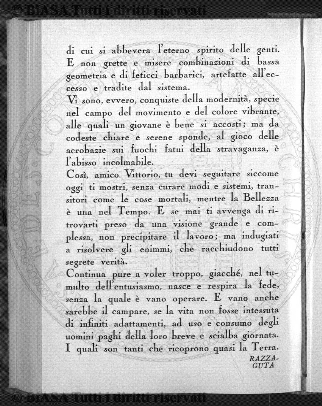 © BIASA Tutti i diritti riservati
di cui si abbevera l'eterno spirito delle genti.
E non grette e misere combinazioni di bassa
geometria e di feticci barbarici, artefatte all'ec-
cesso e tradite dal sistema.
Vi sono, evvero, conquiste della modernità, specie
nel campo del movimento e del colore vibrante,
alle quali un giovane è bene si accosti; ma da
codeste chiare e serene sponde, al gioco delle
acrobazie sui fuochi fatui della stravaganza, è
l'abisso incolmabile.
Così, amico Vittorio, tu devi seguitare siccome
oggi ti mostri, senza curare modi e sistemi, tran-
sitori come le cose mortali, mentre la Bellezza
è una nel Tempo. E se mai ti avvenga di ri-
trovarti preso da una visione grande e com-
plessa, non precipitare il lavoro; ma indugiati
a risolvere gli enimmi, che racchiudono tutti
segrete verità.
Continua pure a voler troppo, giacché, nel tu-
multo dell'entusiasmo, nasce e respira la fede,
senza la quale è vano operare. E vano anche
sarebbe il campare, se la vita non fosse intessuta
di infiniti adattamenti, ad uso e consumo degli
uomini paghi della loro breve e scialba giornata.
I quali son tanti che ricoprono quasi la Terra.
RAZZA-
GUTA
© BIASA Tutti i diritti riservati